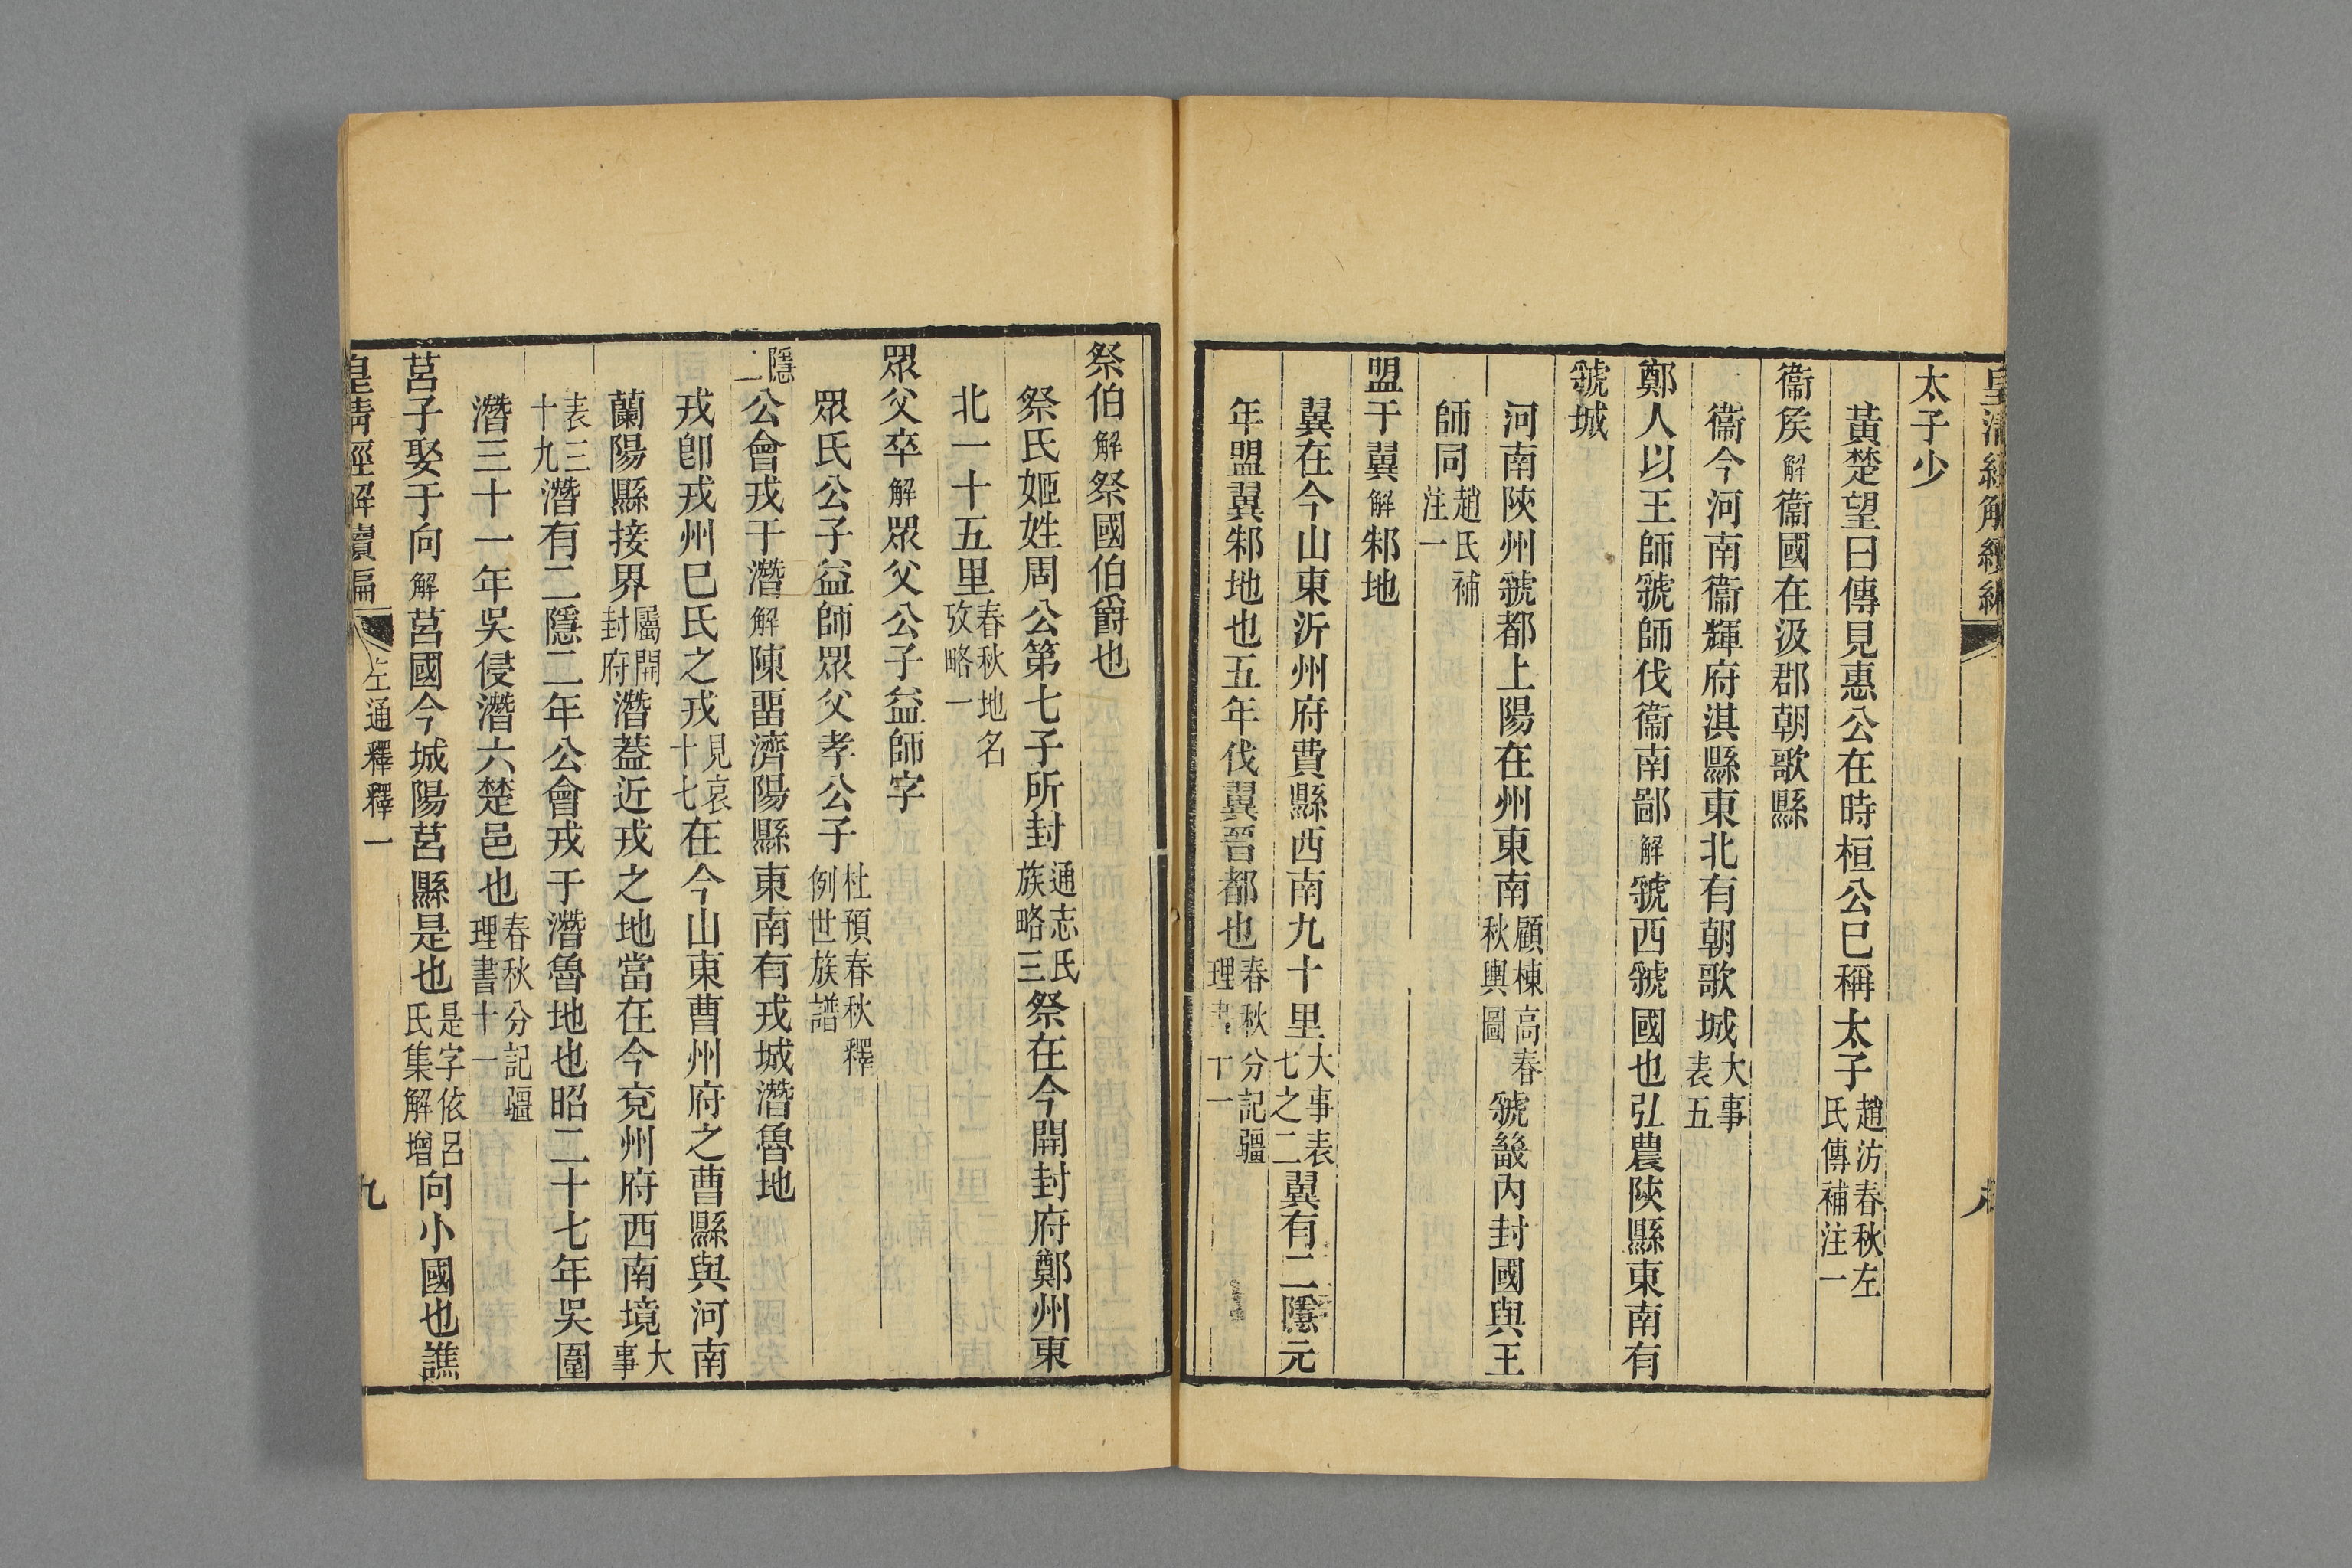 皇清經解續編
太子少
黃楚望曰傳見惠公在時桓公已稱太子趙汸春秋左氏傳補注一
衞矦解衞國在汲郡朝歌縣
衞今河南衞輝府淇縣東北有朝歌城大事表五
鄭人以王師虢師伐衞南鄙解虢西虢國也弘農陝縣東南有
虢城
河南陝州虢都上陽在州東南顧棟高春秋輿圖虢畿內封國與王
師同趙氏補注一
盟于翼解邾地
翼在今山東沂州府費縣西南九十里大事表七之二翼有二隱元
年盟翼邾地也五年伐翼晉都也春秋分記疆理書十一
祭伯解祭國伯爵也
祭氏姬姓周公第七子所封通志氏族略三祭在今開封府鄭州東
北一十五里春秋地名攷略一
眾父卒解眾父公子益師字
眾氏公子益師眾父孝公子杜預春秋釋例世族譜
隱二公會戎于潛解陳畱濟陽縣東南有戎城潛魯地
戎卽戎州巳氏之戎見哀十七在今山東曹州府之曹縣與河南
蘭陽縣接界屬開封府潛葢近戎之地當在今兗州府西南境大事
表三十九潛有二隱二年公會戎于潛魯地也昭二十七年吳圍
潛三十一年吳侵潛六楚邑也春秋分記疆理書十一
莒子娶于向解莒國今城陽莒縣是也是字依呂氏集解增向小國也譙
皇清經解續編
左通釋釋一
九